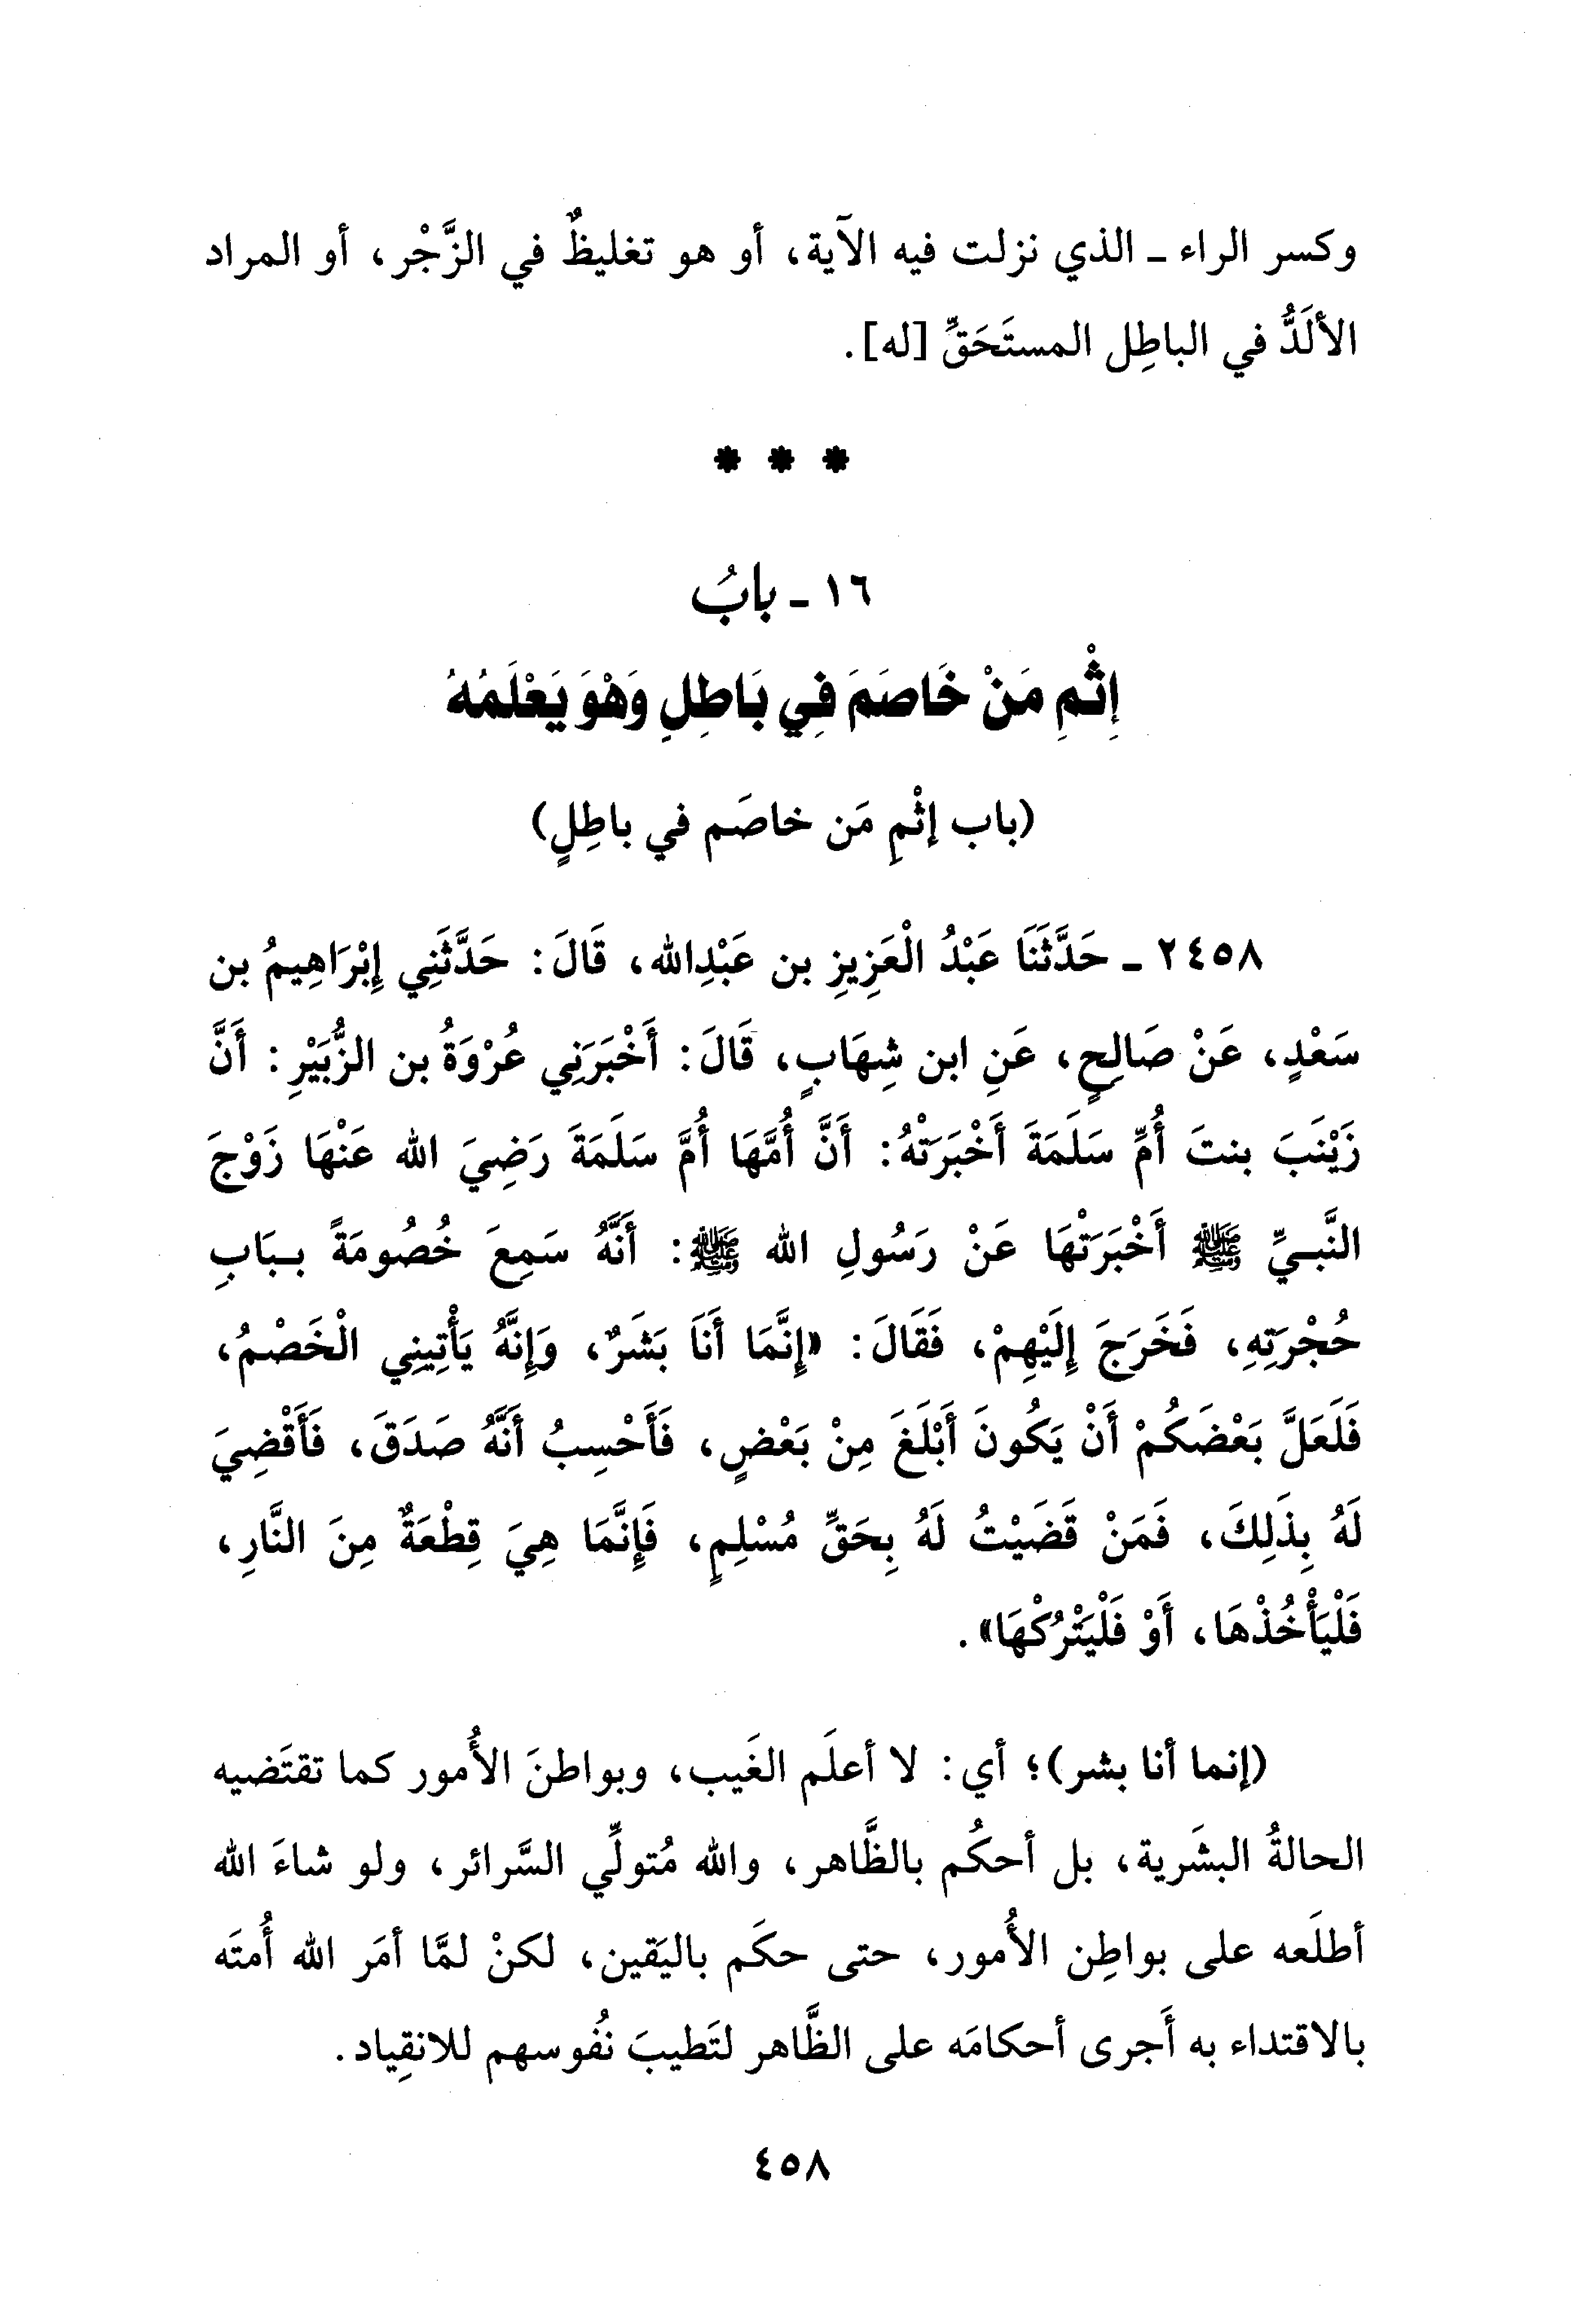 وكسر الراء ـ الذي نزلت فيه الآية، أو هو تغليظٌ في الزَّجْر، أو المراد
الألَدُّ في الباطِل المستَحَقِّ [له].
* * *
١٦ ـ بابُ
إِثْمِ مَنْ خَاصَمَ فِي بَاطِلِ وَهْوَ يَعْلَمُهُ
(باب إثْمِ مَن خاصَم في باطِلٍ)
٢٤٥٨ ـ حَدَّثَنَا عَبْدُ الْعَزِيزِ بن عَبْدِالله، قَالَ: حَدَّثَنِي إِبْرَاهِيمُ بن
سَعْدٍ، عَنْ صَالِحٍ، عَنِ ابن شِهَابٍ، قَالَ: أَخْبَرَنِي عُرْوَةُ بن الزُّبَيْرِ: أَنَّ
زَيْنَبَ بنتَ أُمِّ سَلَمَةَ أَخْبَرَتْهُ: أَنَّ أُمَّهَا أُمَّ سَلَمَةَ رَضِيَ الله عَنْهَا زَوْجَ
النَّبـيِّ ﷺ أَخْبَرَتْهَا عَنْ رَسُولِ الله ﷺ: أَنَّهُ سَمِعَ خُصُومَةً بـبَابِ
حُجْرَتِهِ، فَخَرَجَ إِلَيْهِمْ، فَقَالَ: «إِنَّمَا أَنَا بَشَرٌ، وَإِنَّهُ يَأْتِينِي الْخَصْمُ،
فَلَعَلَّ بَعْضَكُمْ أَنْ يَكُونَ أَبْلَغَ مِنْ بَعْضٍ، فَأَحْسِبُ أَنَّهُ صَدَقَ، فَأَقْضِيَ
لَهُ بِذَلِكَ، فَمَنْ قَضَيْتُ لَهُ بِحَقِّ مُسْلِمٍ، فَإِنَّمَا هِيَ قِطْعَةٌ مِنَ النَّارِ،
فَلْيَأْخُذْهَا، أَوْ فَلْيَتْرُكْهَا».
(إنما أنا بشر)؛ أي: لا أعلَم الغَيب، وبواطنَ الأُمور كما تقتَضيه
الحالةُ البشَرية، بل أحكُم بالظَّاهر، والله مُتولِّي السَّرائر، ولو شاءَ الله
أطلَعه على بواطِن الأُمور، حتى حكَم باليَقين، لكنْ لمَّا أمَر الله أُمتَه
بالاقتداء به أَجرى أحكامَه على الظَّاهر لتَطيبَ نُفوسهم للانقِياد.
٤٥٨